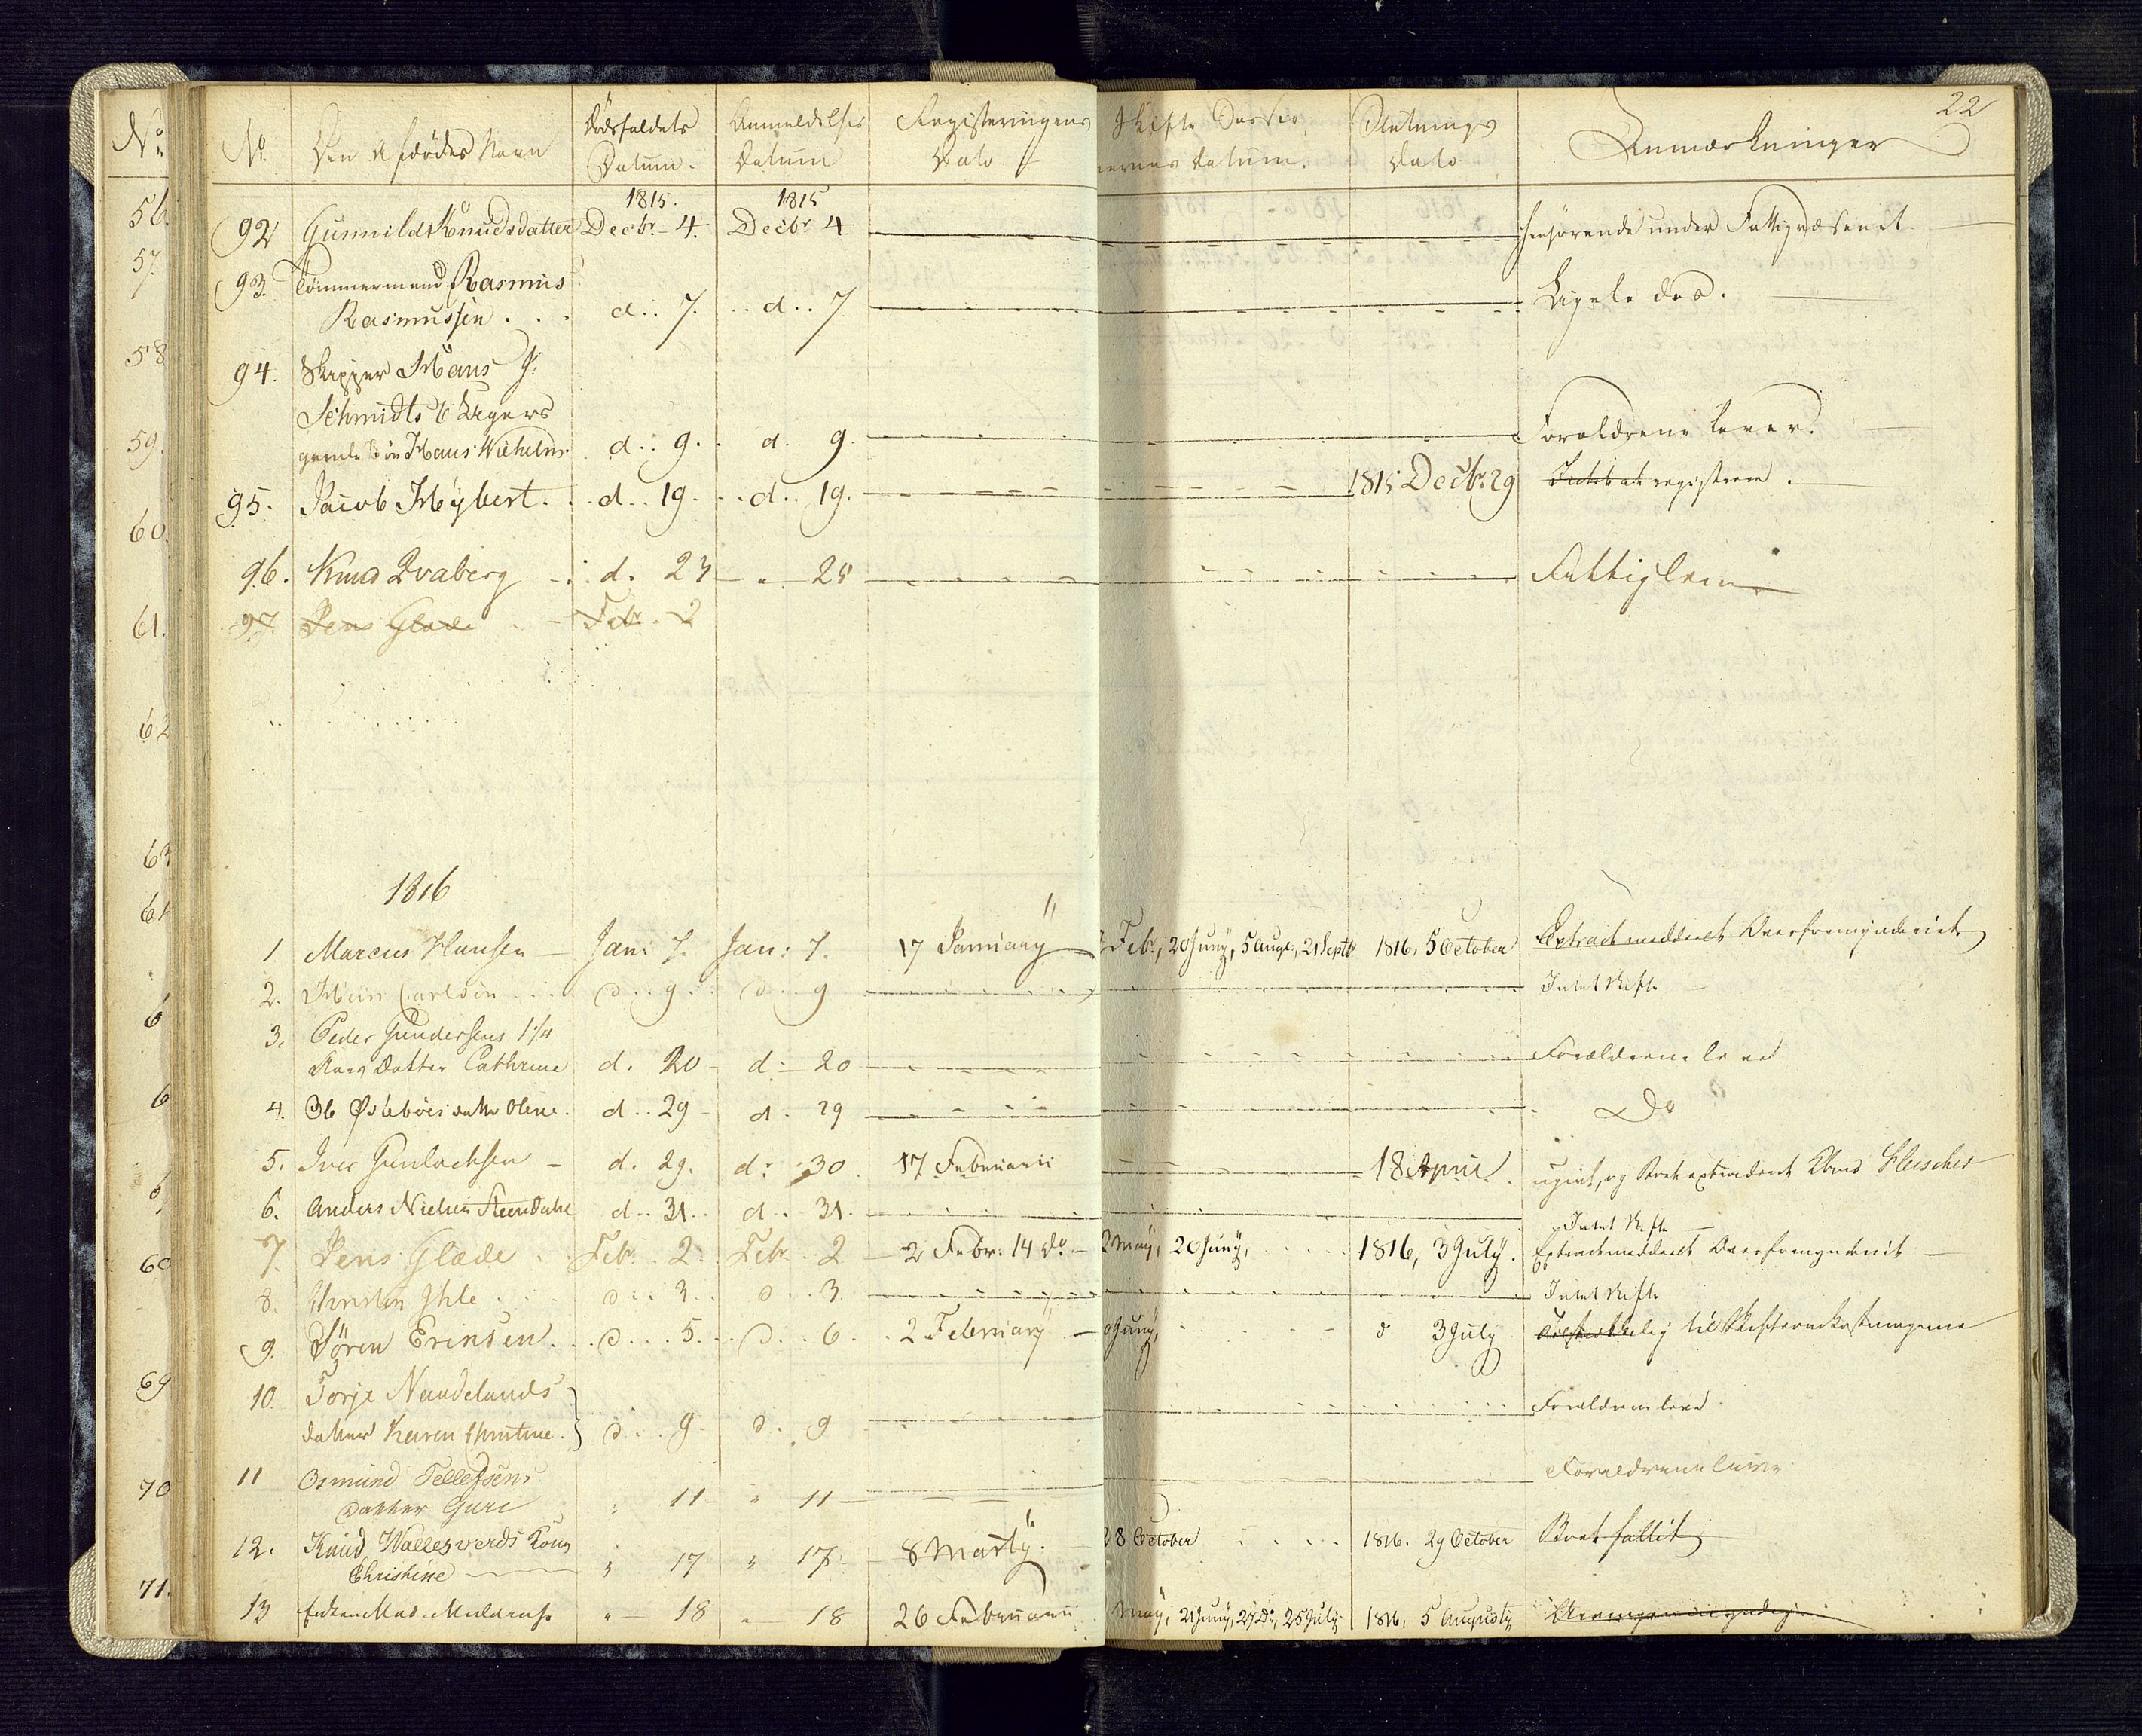 22
No. Den Afdødes Navn Dødsfaldets Datum. Anmeldelses Datum Registeringens Dato Skifte Datum. Slutnings Dato Anmærkninger
1815. 1815
92 Gunnild Knudsdatter Decbr. 4. Decbr. 4 henhørende under Fattigvæsenet.
93. Tømmermand Rasmus
Rasmussen . . . d.. 7. .. d.. 7 Ligeledes.
94. Skipper Hans J:
Schmidts 6 Ugers
gamle Søn Hans Wilhelm. d.. 9. d.. 9 Forældrene lever.
95. Jacob Heybert. d.. 19. d.. 19. 1815 Decbr. 29 Intet at registrere.
96. Knud Qvaberg d. 23 " 25 Fattiglem
97. Jens Glade Febr. 2
1816
1 Marcus Hansen Jan: 7. Jan: 7. 17 January Febr., 20 Juny, 5 Augt., 21 Septbr 1816, 5 October Extract meddeelt Overformynderiet
2. Carlsen d.. 9 d.. 9 Intet Skifte
3. Peder Gundersens 1 1/4
Aars Datter Cathrine d. 20 d. 20 Forældrene leve
4. Ole Østebøes datter Olene. d.. 29 d. 29 Do
5. Iver Gunlochsen d. 29. d. 30. 17 Februarii 18 April. ugivt, og Boet extraderet Fleischer
6. Anders Nielsen Steendahl d.. 31. d. 31. Intet Skifte
7. Jens Glade Febr. 2. Febr. 2 2 Febr. 14 do. 2 May, 20 Juny, 1816, 3 July. Extract meddeelt Overformynderiet
8. Ihle d.. 3. d.. 3. Intet Skifte
9. Søren Erinsen. d... 5. d.. 6. 2 February 0 Juny, d 3 July til Skifteomkostningerne
10. Torje Naudelands
datter Karen Christine. d.. 9. d. 9 Forældrene leve.
11 Osmund Tellefsens
Datter Guri " 11 " 11 Forældrene lever
12. Knud Wallesverds Kone
Christine " 17 " 17 8 Marty. 28 October 1816. 29 October Boet fallit
13 Enken Mad. " 18 " 18 26 Februarii May, 21 Juny, 27 do., 25 July 1816, 5 Augusty
No.
56.
57.
58
59.
60.
61.
62
63
64
6
6
6
60
69
70
71.